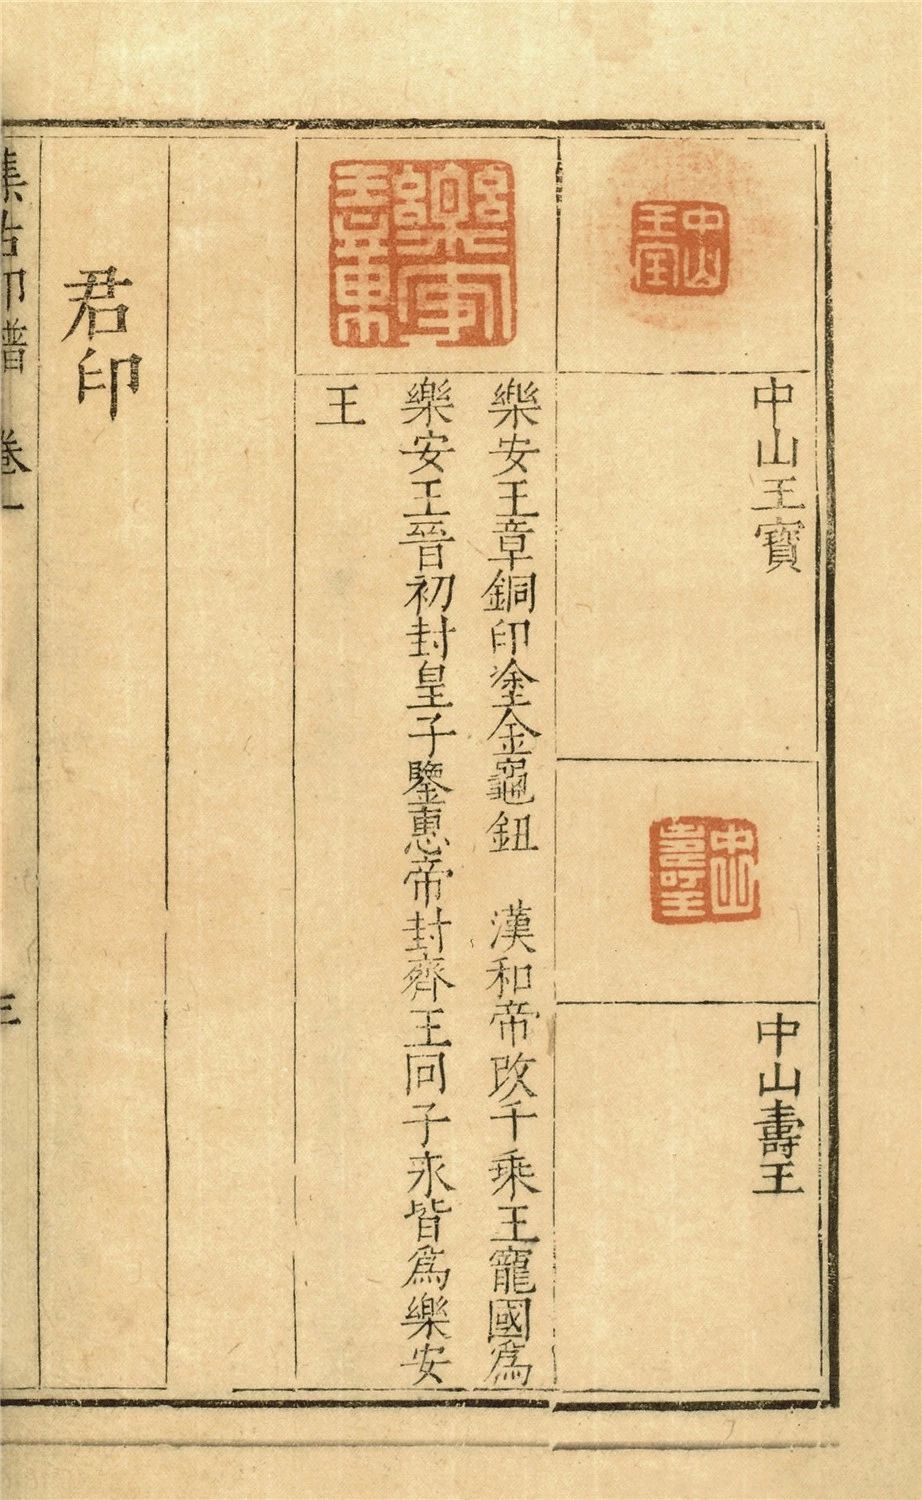 中山王寶
中山壽王
樂安王章銅印塗金龜鈕　漢和帝改千乘王寵國爲
樂安王晉初封皇子鑒惠帝封齊王冏子冰皆爲樂安
王
君印
集古印譜　卷一　三